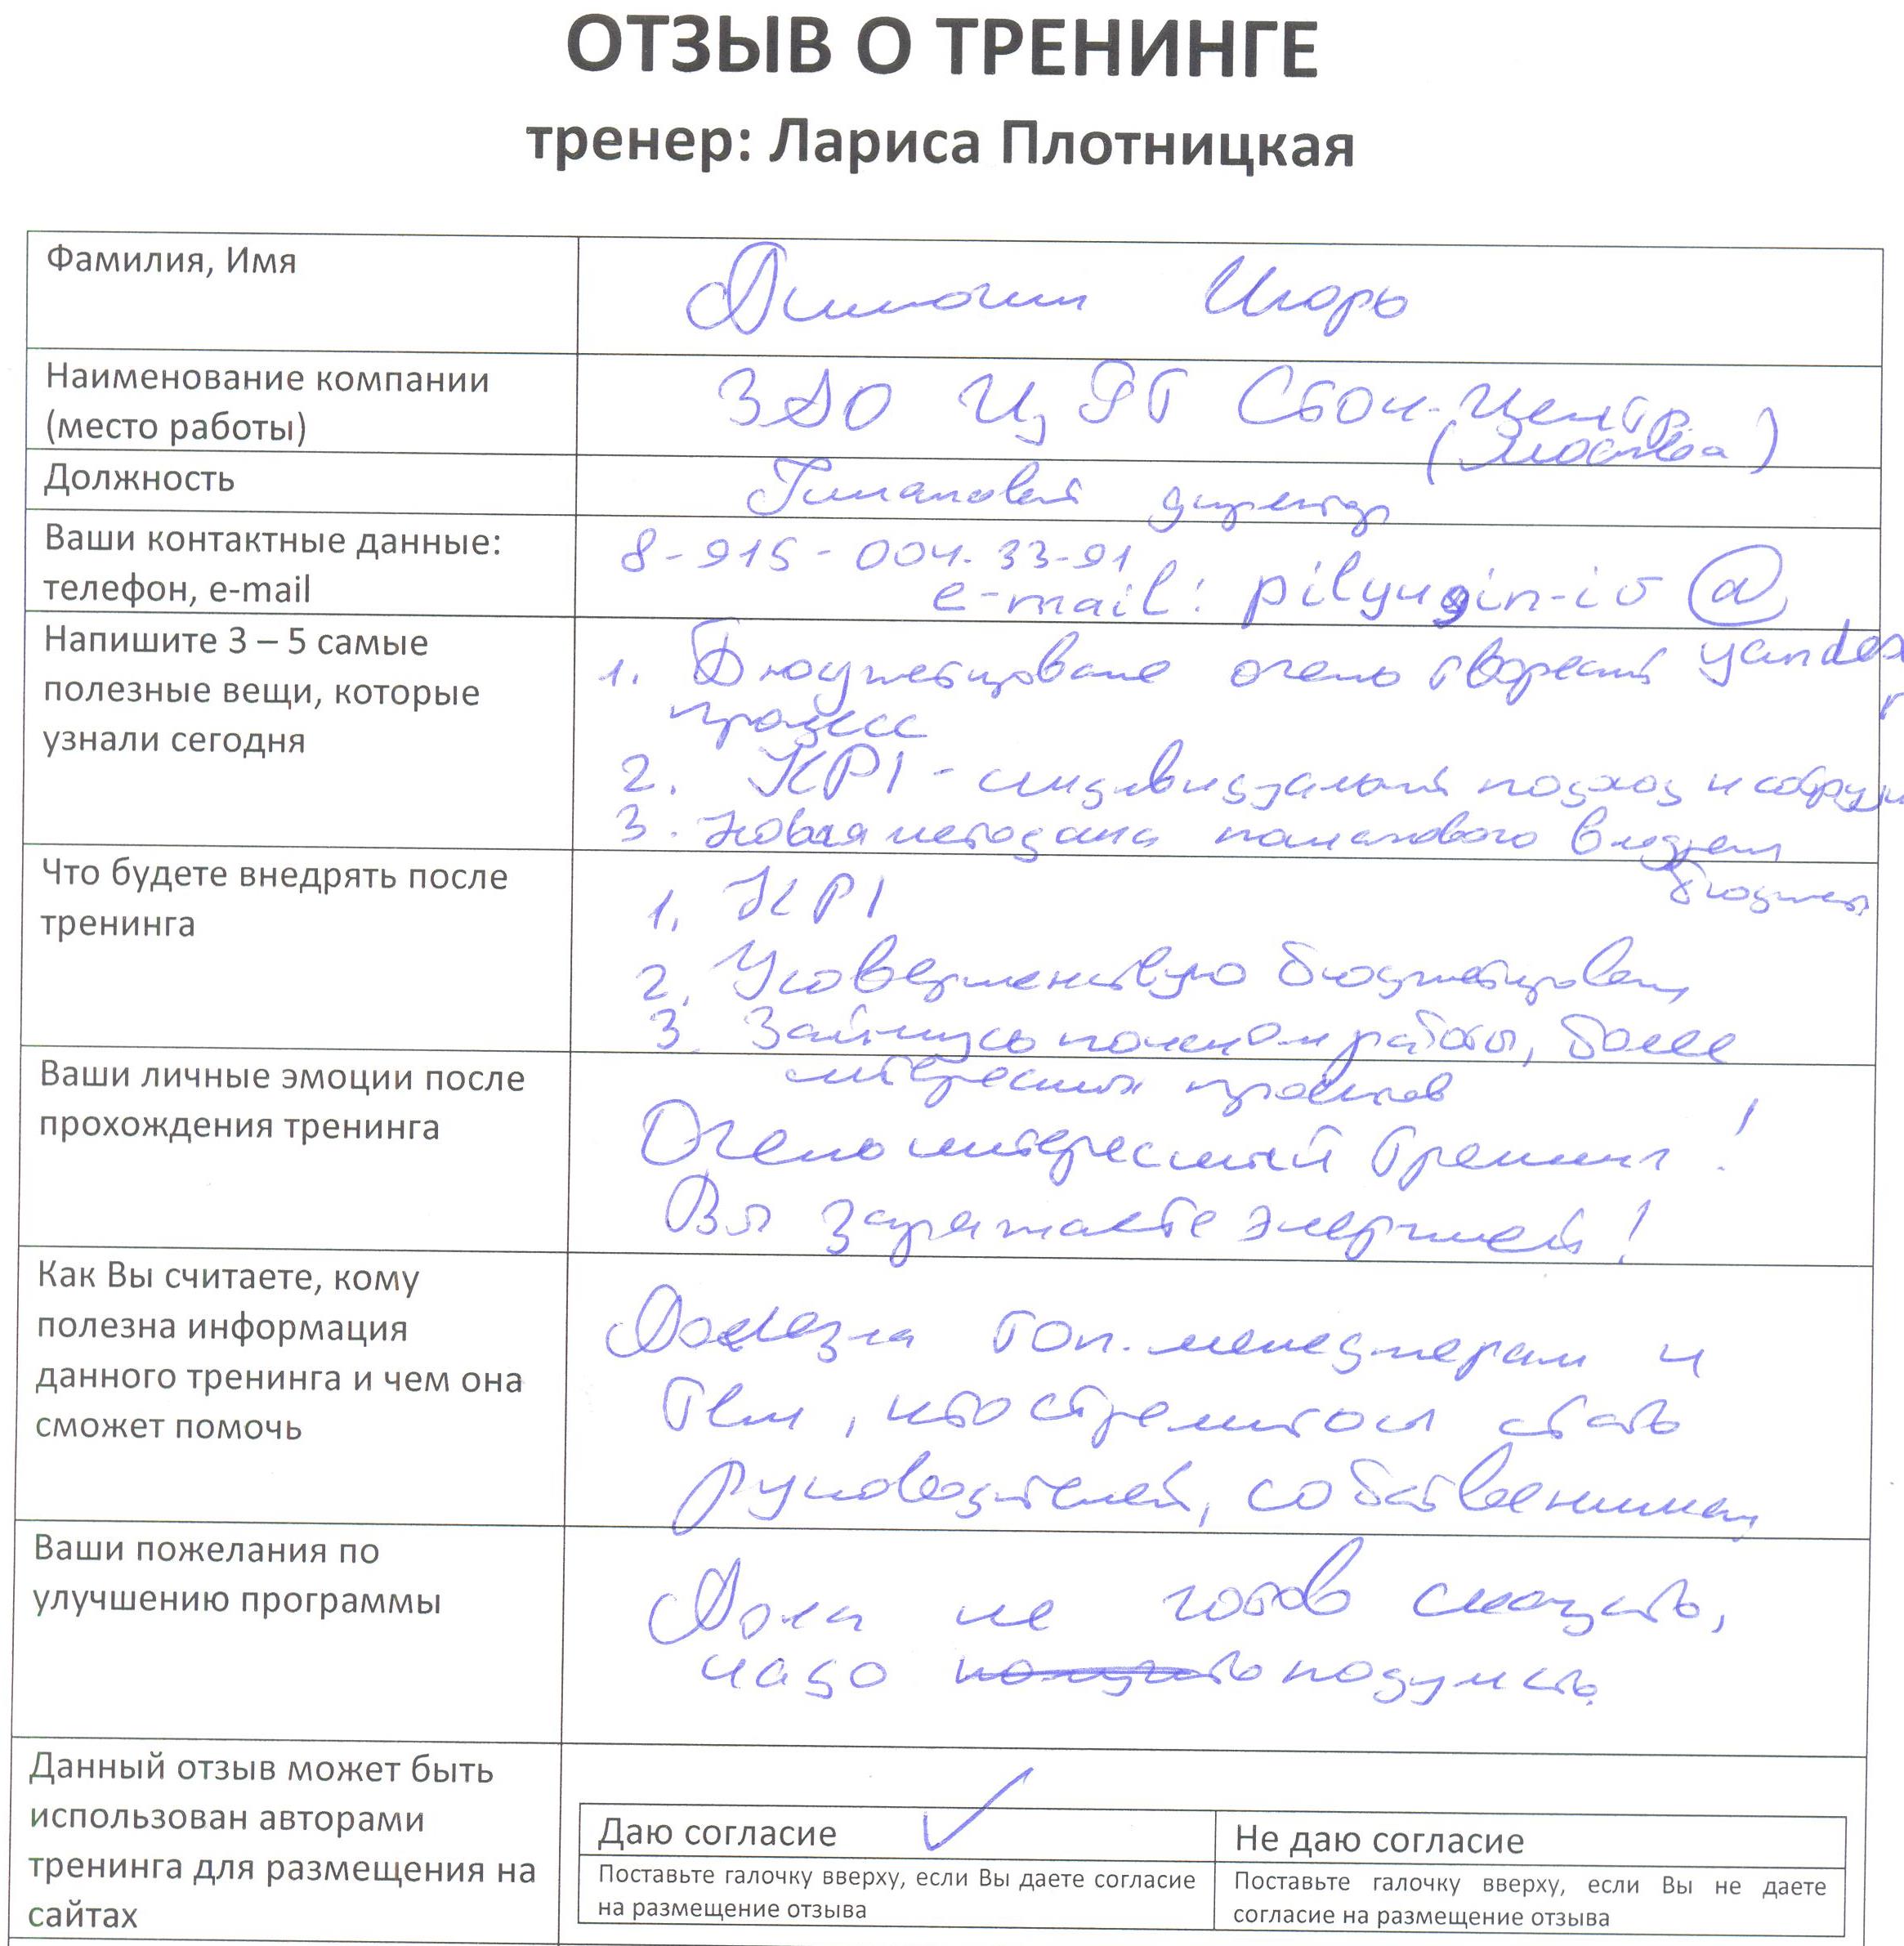 ОТЗЫВ О ТРЕНИНГЕ
тренер: Лариса Плотницкая
Фамилия, Имя
Игорь
Наименование компании
(место работы)
ЗАО Сточ-Центр
(Москва)
Должность
директор
Ваши контактные данные:
телефон, e-mail
8-915-004-33-91
e-mail: pilyugin-io @
yandex
Напишите 3 – 5 самые
полезные вещи, которые
узнали сегодня
1. Бюджетирование очень творческий
процесс
2. KPI - индивидуальный подход к
3. Новая
бюджет
Что будете внедрять после
тренинга
1. KPI
2. Усовершенствую бюджетирование
3. Займусь поиском работы, более
интересных проектов
Ваши личные эмоции после
прохождения тренинга
Очень интересный тренинг!
Вы заряжаете энергией!
Как Вы считаете, кому
полезна информация
данного тренинга и чем она
сможет помочь
Полезна топ-менеджерам и
тем, кто стремится стать
руководителей, собственникам
Ваши пожелания по
улучшению программы
Пока не готов сказать,
надо подумать.
Данный отзыв может быть
использован авторами
тренинга для размещения на
сайтах
Даю согласие
Не даю согласие
Поставьте галочку вверху, если Вы даете согласие
на размещение отзыва
Поставьте галочку вверху, если Вы не даете
согласие на размещение отзыва